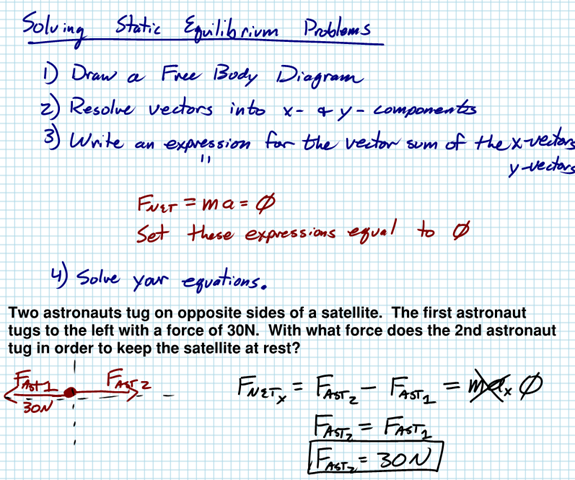 Solving Static Equilibrium Problems
1) Draw a Free Body Diagram
2) Resolve vectors into x- & y- components
3) Write an expression for the vector sum of the x-vectors
" y-vectors
FNET = ma = Ø
Set these expressions equal to Ø
4) Solve your equations.
Two astronauts tug on opposite sides of a satellite. The first astronaut
tugs to the left with a force of 30N. With what force does the 2nd astronaut
tug in order to keep the satellite at rest?
FAst1 FAST2
30N
FNETx = FAST2 - FAST1 = max Ø
FAST2 = FAST1
FAST2 = 30N